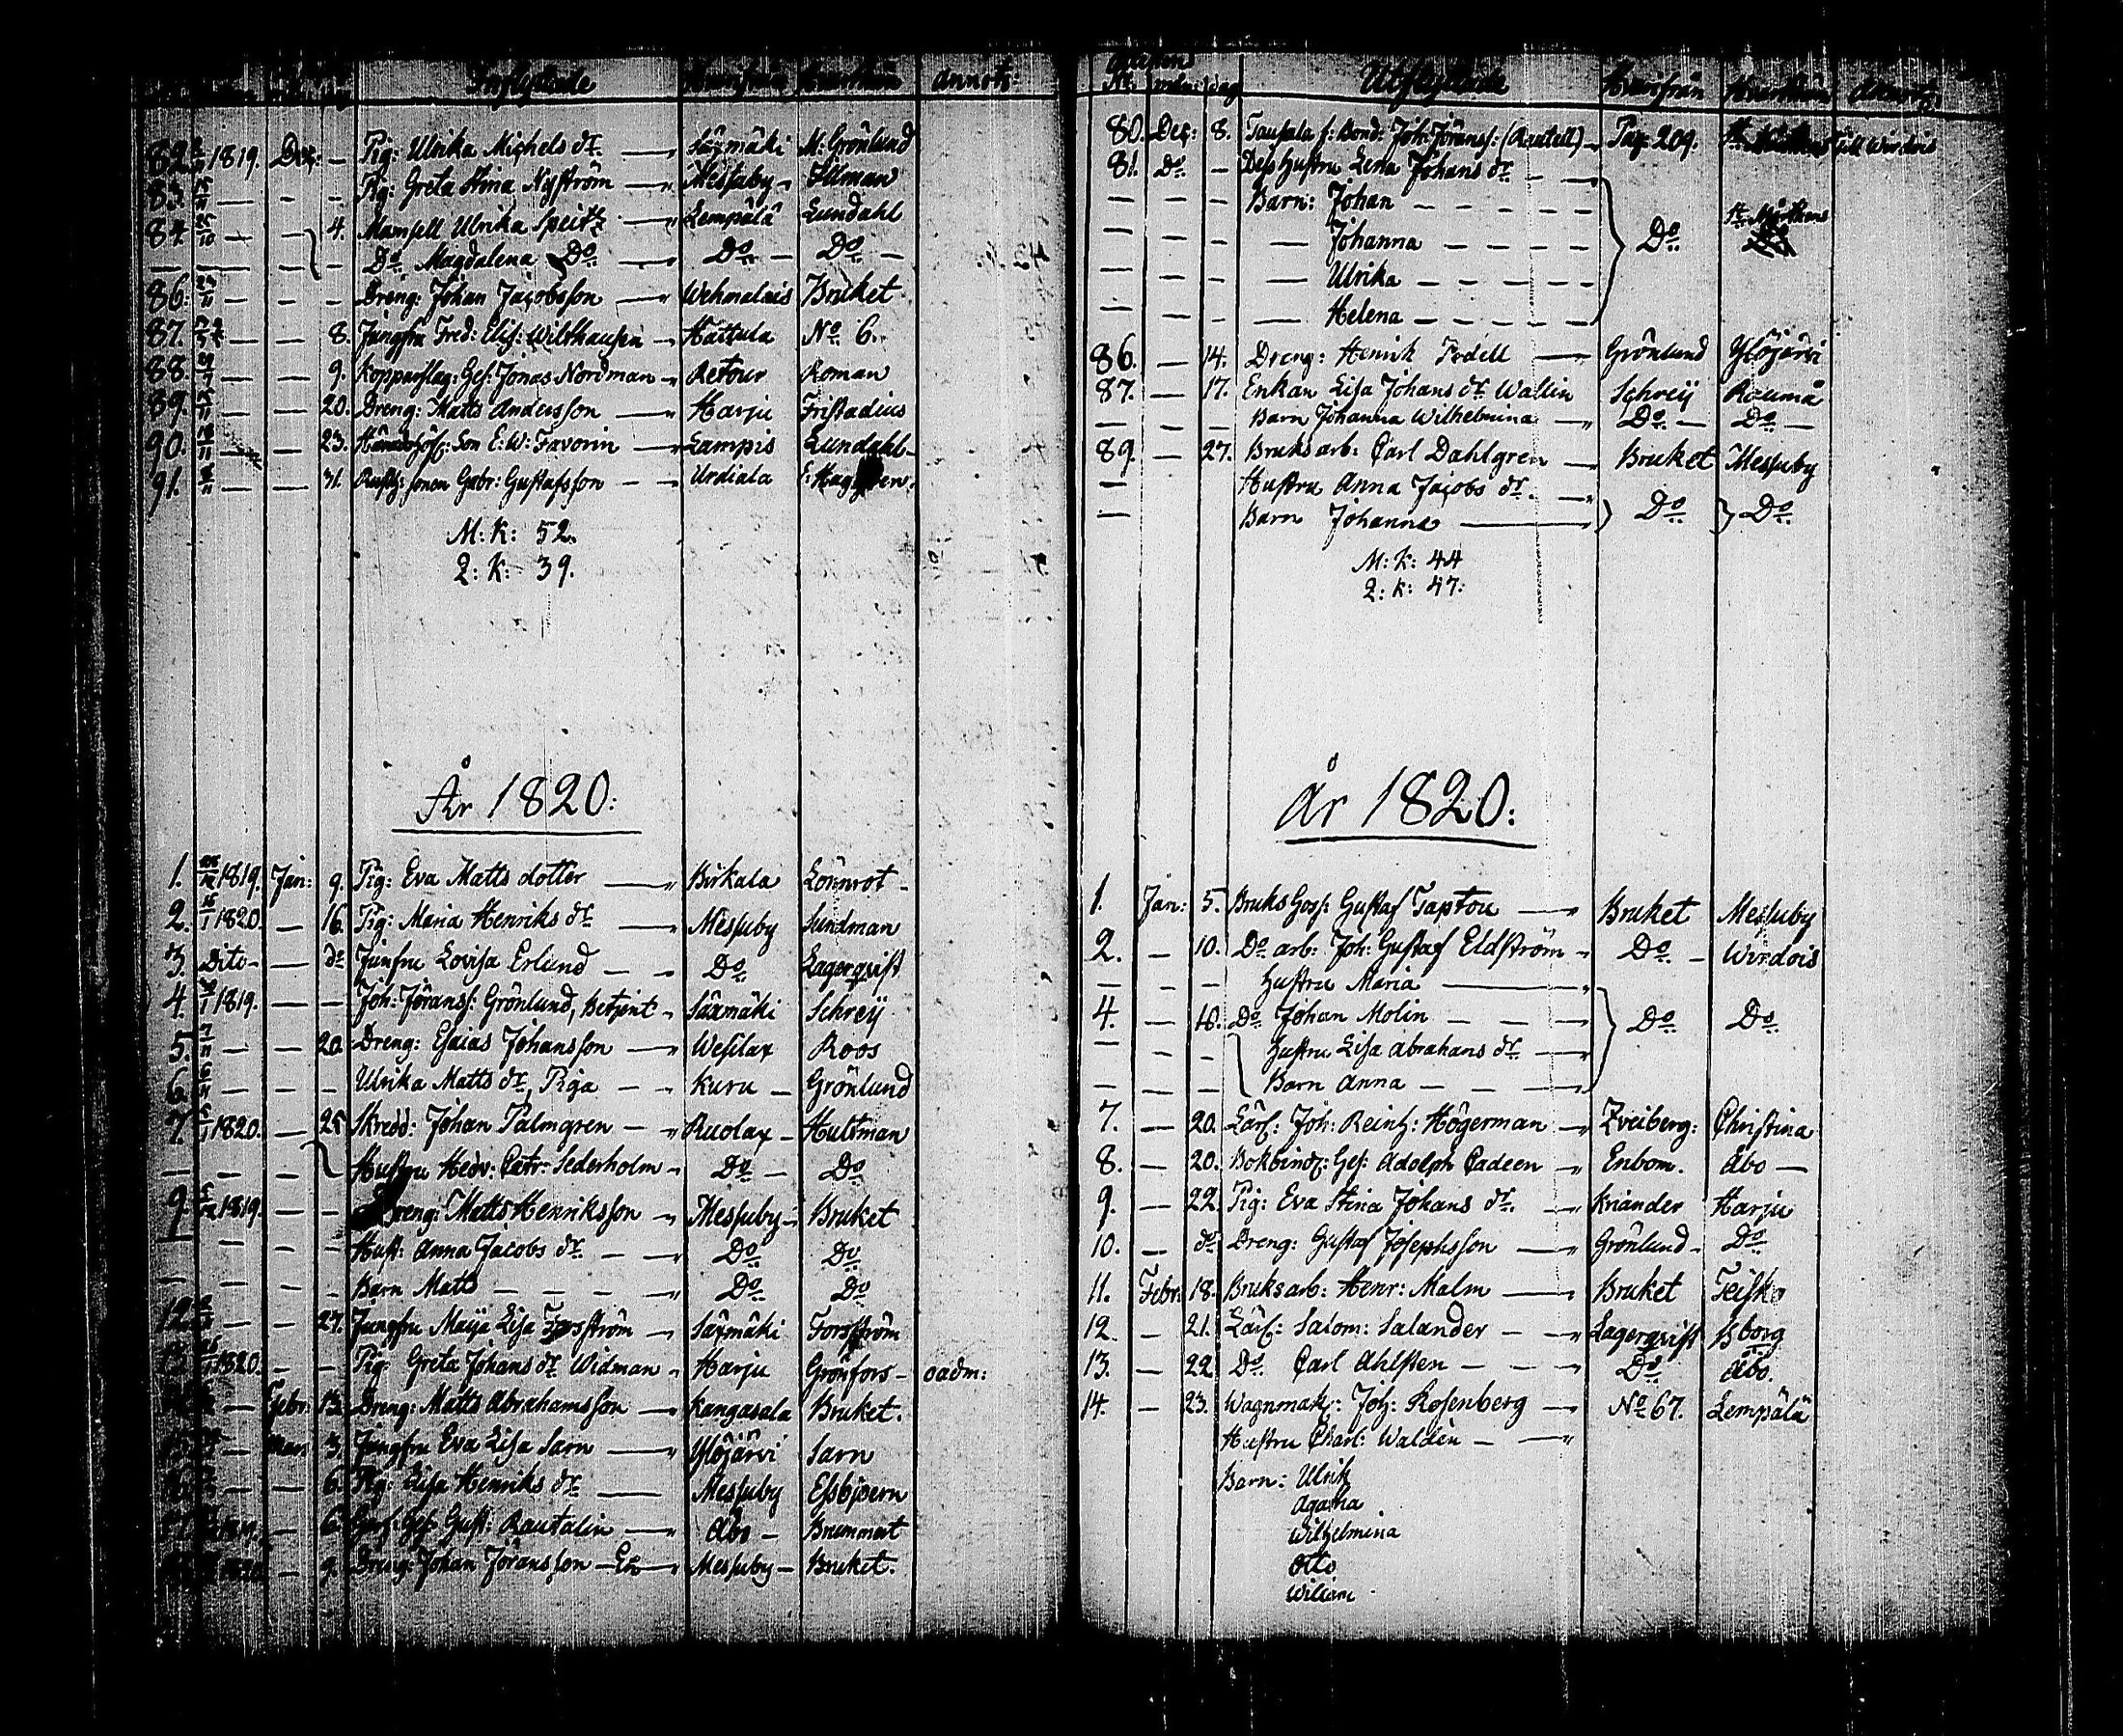 Inflyttade Hvarifrån Hvarthän Annot:
82. 1819. Dec: – Pig: Ulrika Michels dr Säxmäki M: Grönlund
83. 15/11 – – – Pig: Greta Stina Nyström Messuby Illman
84. 25/10 – – 4. Mamsell Ulrika Speitz Lempälä Lundahl
– – – – Do Magdalena Do Do Do
86. – – – Dreng: Johan Jacobsson Wehmalais Bruket
87. – – 8. Jungfru Fred: Elis: Wilskausen Hattula No 6.
88. 29/7 – – 9. Kopparslag: Ges: Jonas Nordman Retour Roman
89. 15/11 – – 20. Dreng: Matts Andersson Harju Fristadius
90. 18/11 – – 23. Son E: W: Favorin Lampis Lundahl
91. – – 31. Rusth: sonen Gabr: Gustafsson Urdiala
M: K: 52.
Q: K: 39.
År 1820:
1. 1819. Jan: 9. Pig: Eva Matts dotter Birkala Lönnrot
2. 16/1 1820. – 16. Pig: Maria Henriks dr Messuby Sundman
3. Dito – do Junfru Lovisa Erlund Do Lagerqvist
4. 1819. – – Joh: Jöranss: Grönlund, Betjent Säxmäki Schreÿ
5. 7/11 – – 20. Dreng: Esaias Johansson Wesilax Roos
6. – – – Ulrika Matts dr, Piga Kuru Grönlund
7. 1820. – 25 Skredd: Johan Palmgren Ruolax Hultman
– – – Hustru Hedv: Catr: Sederholm Do Do
9. 1819. – – Dreng: Matts Henriksson Messuby Bruket
– – – – Hust: Anna Jacobs dr Do Do
– – – – Barn Matts Do Do
12. – – 27. Jungfru Maija Lisa Forsström Säxmäki Forsström
13. 1820. – – Pig: Greta Johans dr Widman Harju Grönfors oadm:
14. – Febr: 13. Dreng: Matts Abrahamsson Kangasala Bruket.
– Mar: 3. Jungfru Eva Lisa Sarn Ylöjärvi Sarn
– – 6. Pig: Lisa Henriks dr Messuby Essbjoern
– 6. Ges: Gust: Rautalin Åbo Brummert
– 9. Dreng: Johan Jöransson Messuby Bruket.
No mån: dag Utflyttade Hvarifrån Hvarthän Annot:
80. Dec: 8. Taupala f: Bond: Joh: Jöranss: (Rautell) Pag: 209. till Wirdois
81. Do – Dess hustru Lena Johans dr
– – – Barn: Johan Do St Mårtens
– – – Johanna
– – – Ulrika
– – – Helena
86. – 14. Dreng: Henrik Podell Grönlund Ylöjärvi
87. – 17. Enkan Lisa Johans dr Wallin Schreij Raumå
– – – Barn Johanna Wilhelmina Do Do
89 – 27. Bruksarb: Carl Dahlgren Bruket Messuby
– Hustru Anna Jacobs dr
– Barn Johanna Do Do
M: K: 44
Q: K: 47:
År 1820:
1. Jan: 5. Bruks Goss: Gustaf Taptou Bruket Messuby
2. – 10. Do arb: Joh: Gustaf Eldström Do Wirdois
– – – Hustru Maria
4. – 18. Do Johan Molin Do Do
– – – Hustru Lisa Abrahans dr
– – – Barn Anna
7. – 20. Lärl: Joh: Reinh: Högerman Zveiberg: Christina
8. – 20. Bokbind: Ges: Adolph Cadeen Enbom. Åbo
9. – 22. Pig: Eva Stina Johans dr. Kriander Harju
10. – do Dreng: Gustaf Josephsson Grönlund Do
11. Febr: 18. Bruksarb: Henr: Malm Bruket Teisko
12. – 21. Lärl: Salom: Salander Lagerqvist Bborg
13. – 22 Do Carl Ahlsten Do Åbo.
14. – 23. Wagnmak: Joh: Rosenberg No 67. Lempälä
Hustru Charl: Waldèn
Barn: Ulrik
Agatha
Wilhelmina
Otto
William